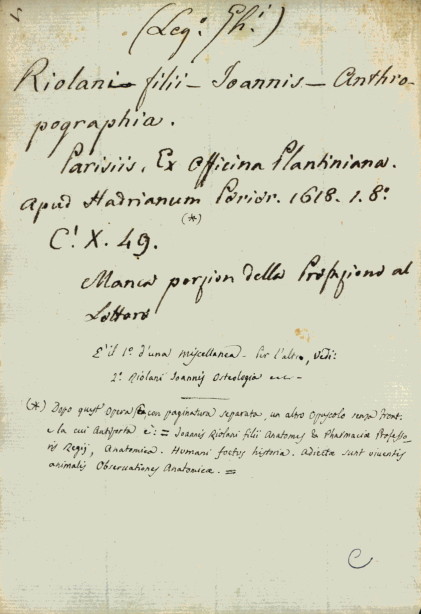 (Legº. Ghⁱ.)
Riolani filii - Joannis - Anthro-
pographia.
Parisiis, Ex Officina Plantiniana.
apud Hadrianum Perier. 1618. 1. 8º
(*)
C! X. 49.
Manca porzion della Prefazione al
Lettore
E' il 1º d'una miscellanea - Per l'altro, vedi:
2º Riolani Joannis Osteologia
(*) Dopo quest'Opera con paginatura separata, un altro Opuscolo senza front.
e la cui Antiporta è: = Joannis Riolani filii Anatomes & Pharmaciæ Professo-
ris Regij, Anatomica. Humani foetus historia. Adiectæ sunt viventis
animalis Observationes Anatomicæ. =
C